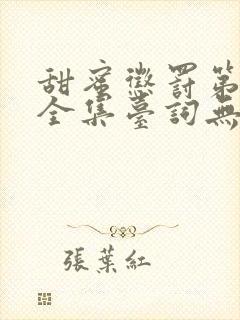 甜蜜懲罰第
全集臺詞無
張葉紅